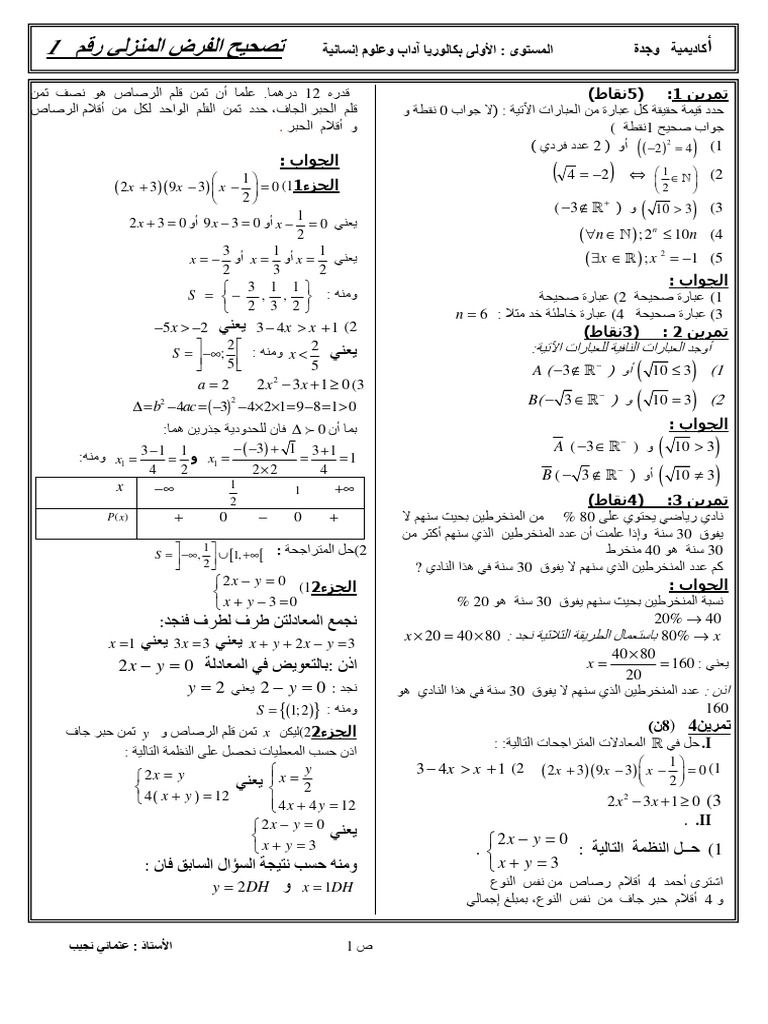 أكاديمية وجدة
المستوى : الأولى بكالوريا آداب وعلوم إنسانية
تصحيح الفرض المنزلي رقم 1
تمرين 1: (5نقاط)
حدد قيمة حقيقة كل عبارة من العبارات الآتية : (لا جواب 0 نقطة و
جواب صحيح 1نقطة )
1) ((−2)² = 4) أو ( 2 عدد فردي )
2) (1/2 ∈ ℕ) ⇔ (√4 = −2)
3) (√10 > 3) و (−3 ∉ ℝ⁺)
4) (∀n ∈ ℕ); 2ⁿ ≤ 10n
5) (∃x ∈ ℝ); x² = −1
الجواب :
1) عبارة صحيحة 2) عبارة صحيحة
3) عبارة صحيحة 4) عبارة خاطئة خد مثلا : n = 6
تمرين 2 : (3نقاط)
أوجد العبارات النافية للعبارات الآتية:
1) (√10 ≤ 3) أو A (−3 ∉ ℝ⁻)
2) (√10 = 3) و B(−√3 ∈ ℝ⁻)
الجواب :
(√10 > 3) و A̅ (−3 ∈ ℝ⁻)
(√10 ≠ 3) أو B̅ (−√3 ∉ ℝ⁻)
تمرين 3: (4نقاط)
نادي رياضي يحتوي على 80 % من المنخرطين بحيث سنهم لا
يفوق 30 سنة وإذا علمت أن عدد المنخرطين الذي سنهم أكثر من
30 سنة هو 40 منخرط
كم عدد المنخرطين الذي سنهم لا يفوق 30 سنة في هذا النادي ?
الجواب :
نسبة المنخرطين بحيث سنهم يفوق 30 سنة هو 20 %
20% → 40
80% → x باستعمال الطريقة الثلاثية نجد : x × 20 = 40 × 80
يعني : x = (40 × 80)/20 = 160
اذن : عدد المنخرطين الذي سنهم لا يفوق 30 سنة في هذا النادي هو
160
تمرين4 (8ن)
I. حل في ℝ المعادلات المتراجحات التالية: :
1) (2x + 3)(9x − 3)(x − 1/2) = 0 2) 3 − 4x > x + 1
3) 2x² − 3x + 1 ≥ 0
II. .
1) حــل النظمة التالية : {2x − y = 0 .
x + y = 3
اشترى أحمد 4 أقلام رصاص من نفس النوع
و 4 أقلام حبر جاف من نفس النوع، بمبلغ إجمالي
قدره 12 درهما. علما أن ثمن قلم الرصاص هو نصف ثمن
قلم الحبر الجاف، حدد ثمن القلم الواحد لكل من أقلام الرصاص
و أقلام الحبر .
الجواب :
الجزء1 1) (2x + 3)(9x − 3)(x − 1/2) = 0
يعني x − 1/2 = 0 أو 9x − 3 = 0 أو 2x + 3 = 0
يعني x = 1/2 أو x = 1/3 أو x = −3/2
ومنه : S = {−3/2, 1/3, 1/2}
2) 3 − 4x > x + 1 يعني −5x > −2
يعني x < 2/5 ومنه : S = ]−∞; 2/5[
3) 2x² − 3x + 1 ≥ 0 a = 2
Δ = b² − 4ac = (−3)² − 4×2×1 = 9 − 8 = 1 > 0
بما أن Δ ≻ 0 فان للحدودية جذرين هما:
x₁ = (−(−3) + √1)/(2×2) = (3+1)/4 = 1 و x₁ = (3−1)/4 = 1/2 ومنه:
x −∞ 1/2 1 +∞
P(x) + 0 − 0 +
2)حل المتراجحة : S = ]−∞, 1/2] ∪ [1, +∞[
الجزء2 1) {2x − y = 0
x + y − 3 = 0
نجمع المعادلتن طرف لطرف فنجد:
x + y + 2x − y = 3 يعني 3x = 3 يعني x = 1
اذن :بالتعويض في المعادلة 2x − y = 0
نجد : 2 − y = 0 يعني y = 2
ومنه : S = {(1;2)}
الجزء2 2)ليكن x ثمن قلم الرصاص و y ثمن حبر جاف
اذن حسب المعطيات نحصل على النظمة التالية :
{2x = y يعني {x = y/2
4(x + y) = 12 4x + 4y = 12
يعني {2x − y = 0
x + y = 3
ومنه حسب نتيجة السؤال السابق فان :
x = 1DH و y = 2DH
ص 1
الأستاذ : عثماني نجيب